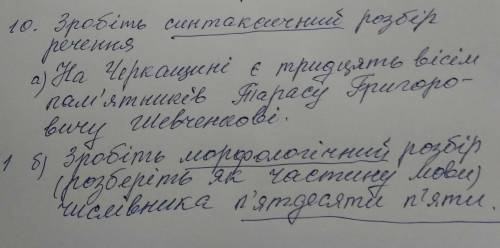 10. Зробіть синтаксичний розбір
речення
а) На Черкащині є тридцять вісім
пам'ятників Тарасу Григоро-
вичу Шевченкові.
1 б) Зробіть морфологічний розбір
(розберіть як частину мови)
числівника п'ятдесяти п'яти.